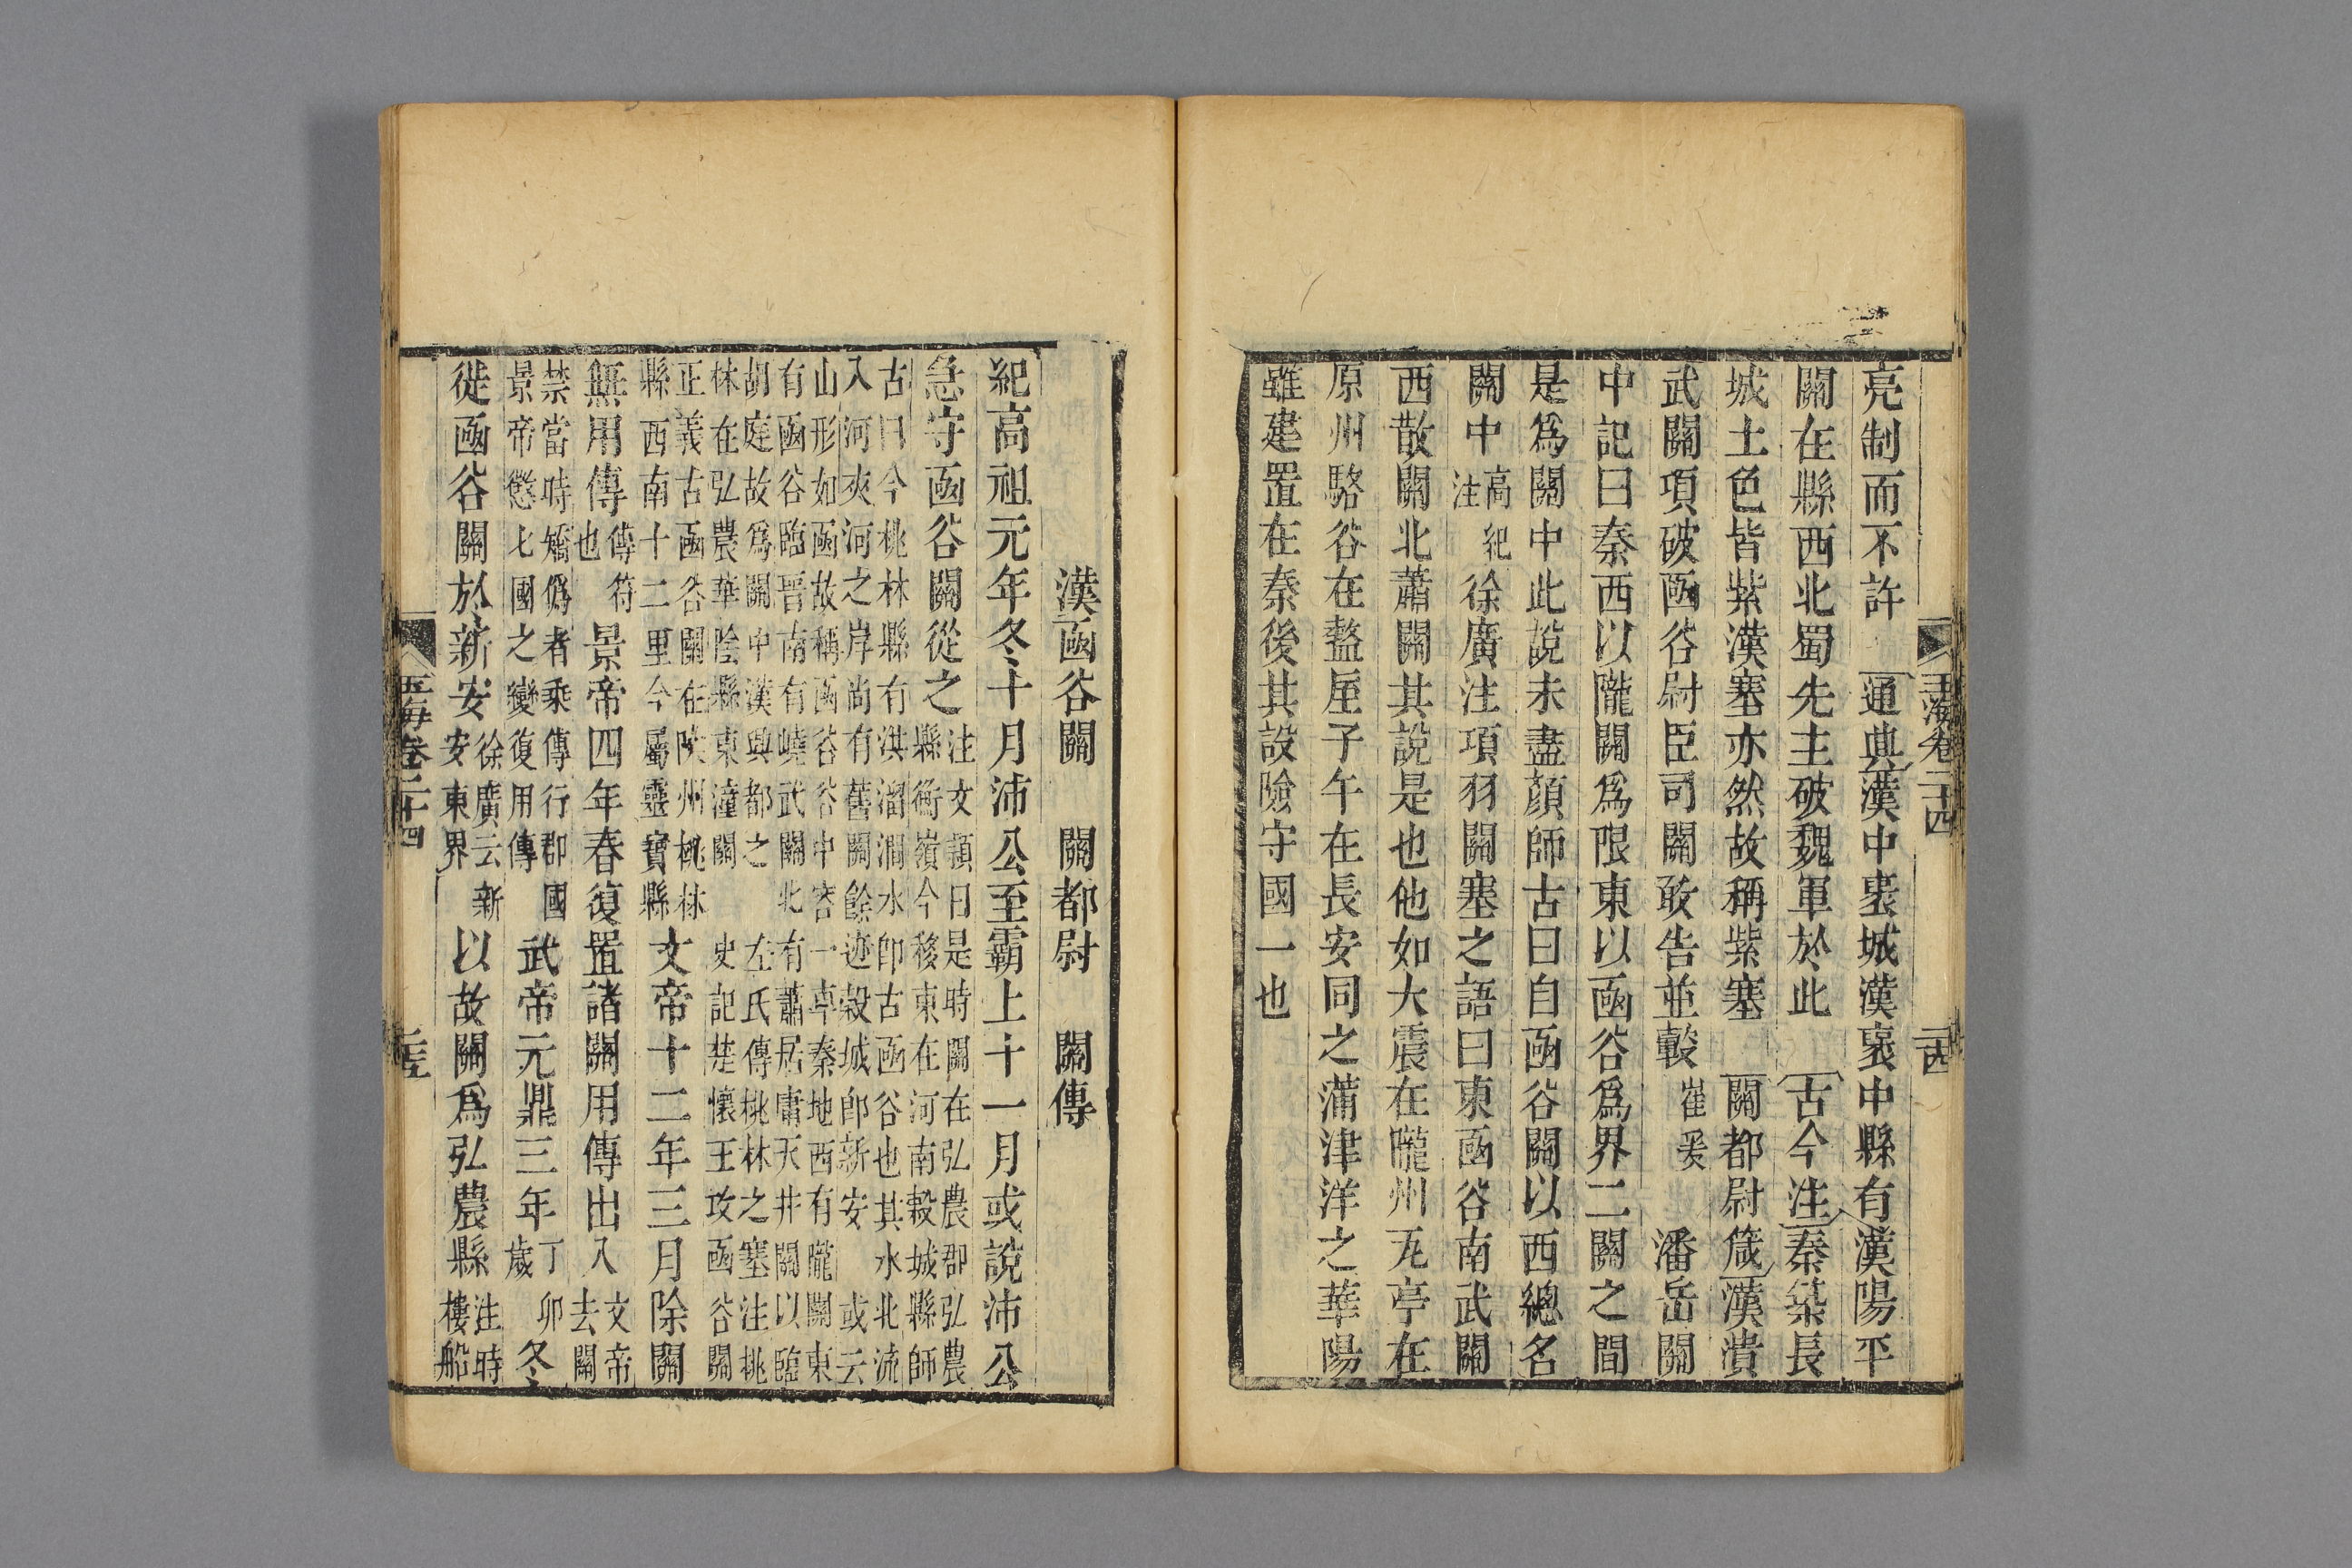 玉海卷二十四 二十四
亮制而不許 通典漢中褒城漢褒中縣有漢陽平
關在縣西北蜀先主破魏軍於此 古今注秦築長
城土色皆紫漢塞亦然故稱紫塞 關都尉箴漢潰
武關項破函谷尉臣司關敢告並轂 崔爰 潘岳關
中記曰秦西以隴關爲限東以函谷爲界二關之間
是爲關中此說未盡顏師古曰自函谷關以西總名
關中 高紀注 徐廣注項羽關塞之語曰東函谷南武關
西散關北蕭關其說是也他如大震在隴州瓦亭在
原州駱谷在盩厔子午在長安同之蒲津洋之華陽
雖建置在秦後其設險守國一也
漢函谷關 關都尉 關傳
紀高祖元年冬十月沛公至霸上十一月或說沛公
急守函谷關從之 注文穎曰是時關在弘農郡弘農
縣衡嶺今移東在河南穀城縣師
古曰今桃林縣有洪溜澗水卽古函谷也其水北流
入河夾河之岸尚有舊關餘迹穀城卽新安 或云
山形如函故稱函谷谷中容一車秦地西有隴關東
有函谷臨晉南有嶢武關北有蕭居庸天井關以臨
胡庭故爲關中漢興都之 左氏傳桃林之塞注桃
林在弘農華陰縣東潼關 史記楚懷王攻函谷關
正義古函谷關在陝州桃林
縣西南十二里今屬靈寶縣 文帝十二年三月除關
無用傳 傳符也 景帝四年春復置諸關用傳出入 文帝去關
禁當時矯僞者乘傳行郡國
景帝懲七國之變復用傳 武帝元鼎三年 丁卯歲 冬
徙函谷關於新安 徐廣云新安東界 以故關爲弘農縣 注時樓船
玉海卷二十四 二十五